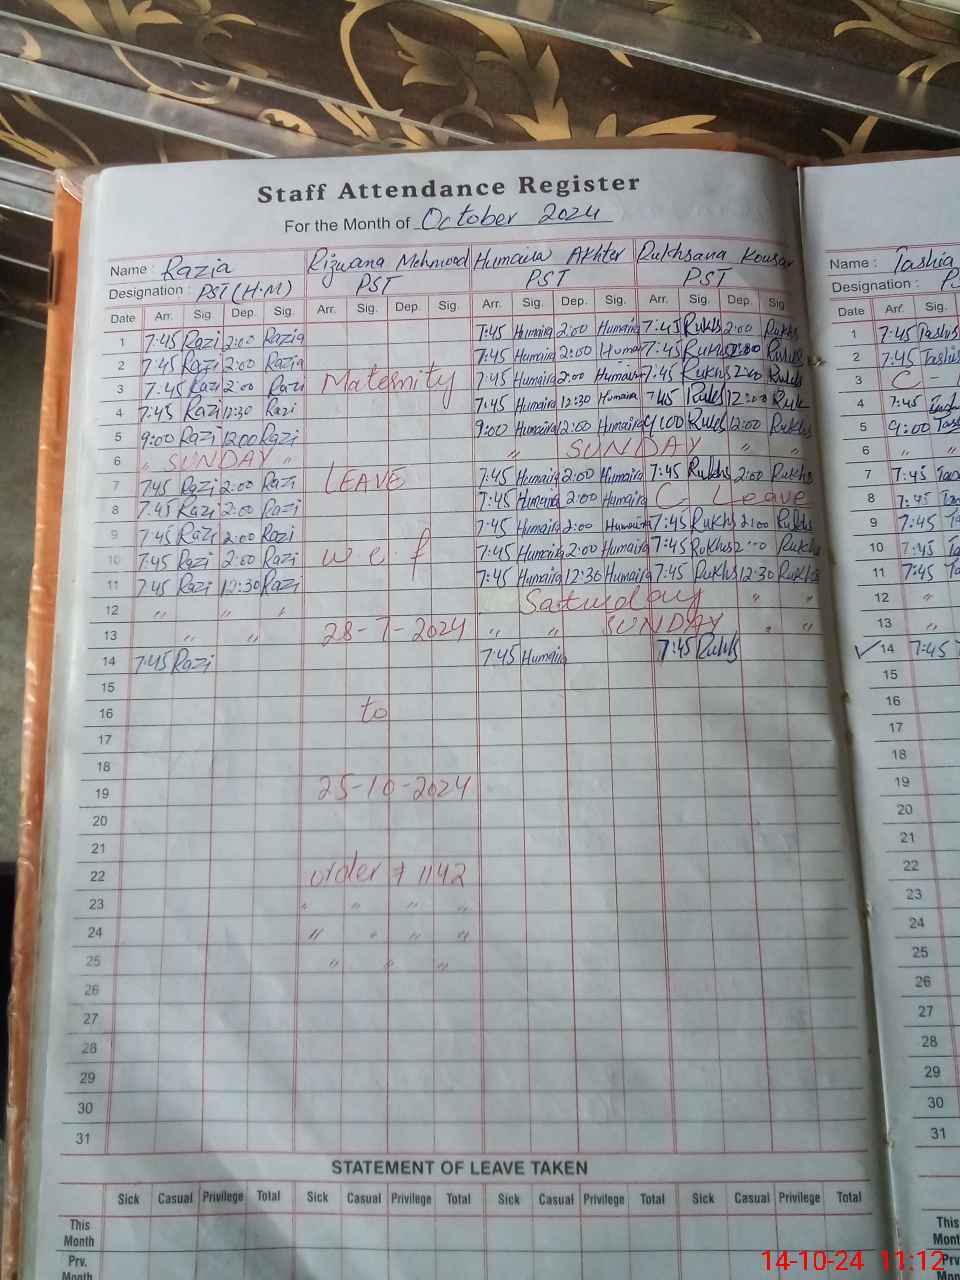 Staff Attendance Register
For the Month of October 2024
Name : Razia Rizwana Mehmood Humaira Akhter Rukhsana Kousar
Designation : PST (H.M) PST PST PST
Date Arr. Sig. Dep. Sig. Arr. Sig. Dep. Sig. Arr. Sig. Dep. Sig. Arr. Sig. Dep. Sig
1 7:45 Razi 2:00 Razia 7:45 Humaira 2:00 Humaira 7:45 Rukhs 2:00 Rukhs
2 7:45 Razi 2:00 Razia 7:45 Humaira 2:00 Humai 7:45 Rukhs 2:00 Rukhs
3 7:45 Razi 2:00 Razi Maternity 7:45 Humaira 2:00 Humaira 7:45 Rukhs 2:00 Rukhs
4 7:45 Razi 12:30 Razi 7:45 Humaira 12:30 Humaira 7:45 Rukhs 12:00 Ruk
5 9:00 Razi 12:00 Razi 9:00 Humaira 12:00 Humaira 9:00 Rukhs 12:00 Rukhs
6 " SUNDAY " " SUNDAY " "
7 7:45 Razi 2:00 Razi LEAVE 7:45 Humaira 2:00 Humaira 7:45 Rukhs 2:00 Rukhs
8 7:45 Razi 2:00 Razi 7:45 Humaira 2:00 Humaira C. Leave
9 7:45 Razi 2:00 Razi 7:45 Humaira 2:00 Humaira 7:45 Rukhs 2:00 Rukhs
10 7:45 Razi 2:00 Razi w.e.f 7:45 Humaira 2:00 Humaira 7:45 Rukhs 2:00 Rukhs
11 7:45 Razi 12:30 Razi 7:45 Humaira 12:30 Humaira 7:45 Rukhs 12:30 Rukhs
12 " " " Saturday " "
13 " " 28-7-2024 " " SUNDAY " "
14 7:45 Razi 7:45 Humaira 7:45 Rukhs
15
16 to
17
18
19 25-10-2024
20
21
22 order # 1142
23 " " " "
24 " " " "
25 " " "
26
27
28
29
30
31
STATEMENT OF LEAVE TAKEN
Sick Casual Privilege Total Sick Casual Privilege Total Sick Casual Privilege Total Sick Casual Privilege Total
This
Month
Prv.
Month
Name :
Designation :
Date Arr. Sig.
1 7:45
2 7:45
3 C -
4 7:45
5 9:00
6 " "
7 7:45
8 7:45
9 7:45
10 7:45
11 7:45
12 "
13 "
14 7:45
15
16
17
18
19
20
21
22
23
24
25
26
27
28
29
30
31
This
Prv.
14-10-24 11:12